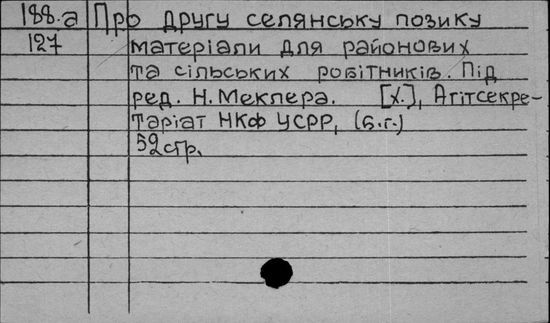 188.а Про другу селянську позику
127 матеріали для районових
та сільських робітників. Під
ред. Н. Меклера. [Х.], Агітсекре-
таріат НКФ УСРР, (б.г.)
52 стр.